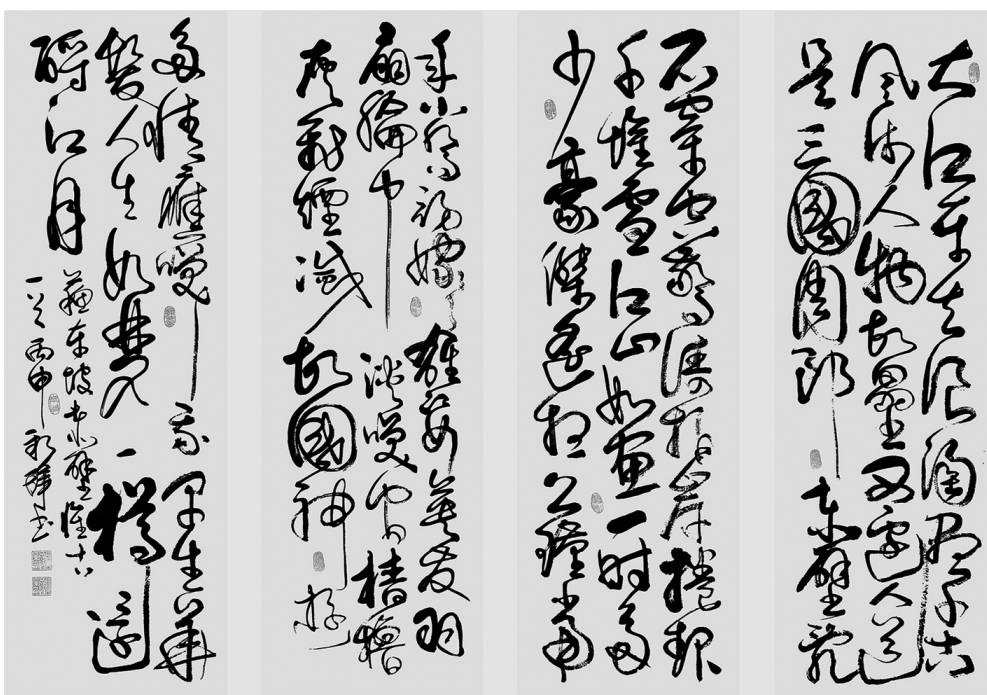 大江東去浪淘盡千古
風流人物故壘西邊人道
是三國周郎赤壁亂
石穿空驚濤拍岸捲起
千堆雪江山如畫一時多
少豪傑遙想公瑾當
年小喬初嫁了雄姿英發羽
扇綸巾談笑間檣櫓
灰飛煙滅故國神遊
多情應笑我早生華
髮人生如夢一樽還
酹江月
蘇東坡赤壁懷古
一首丙申書